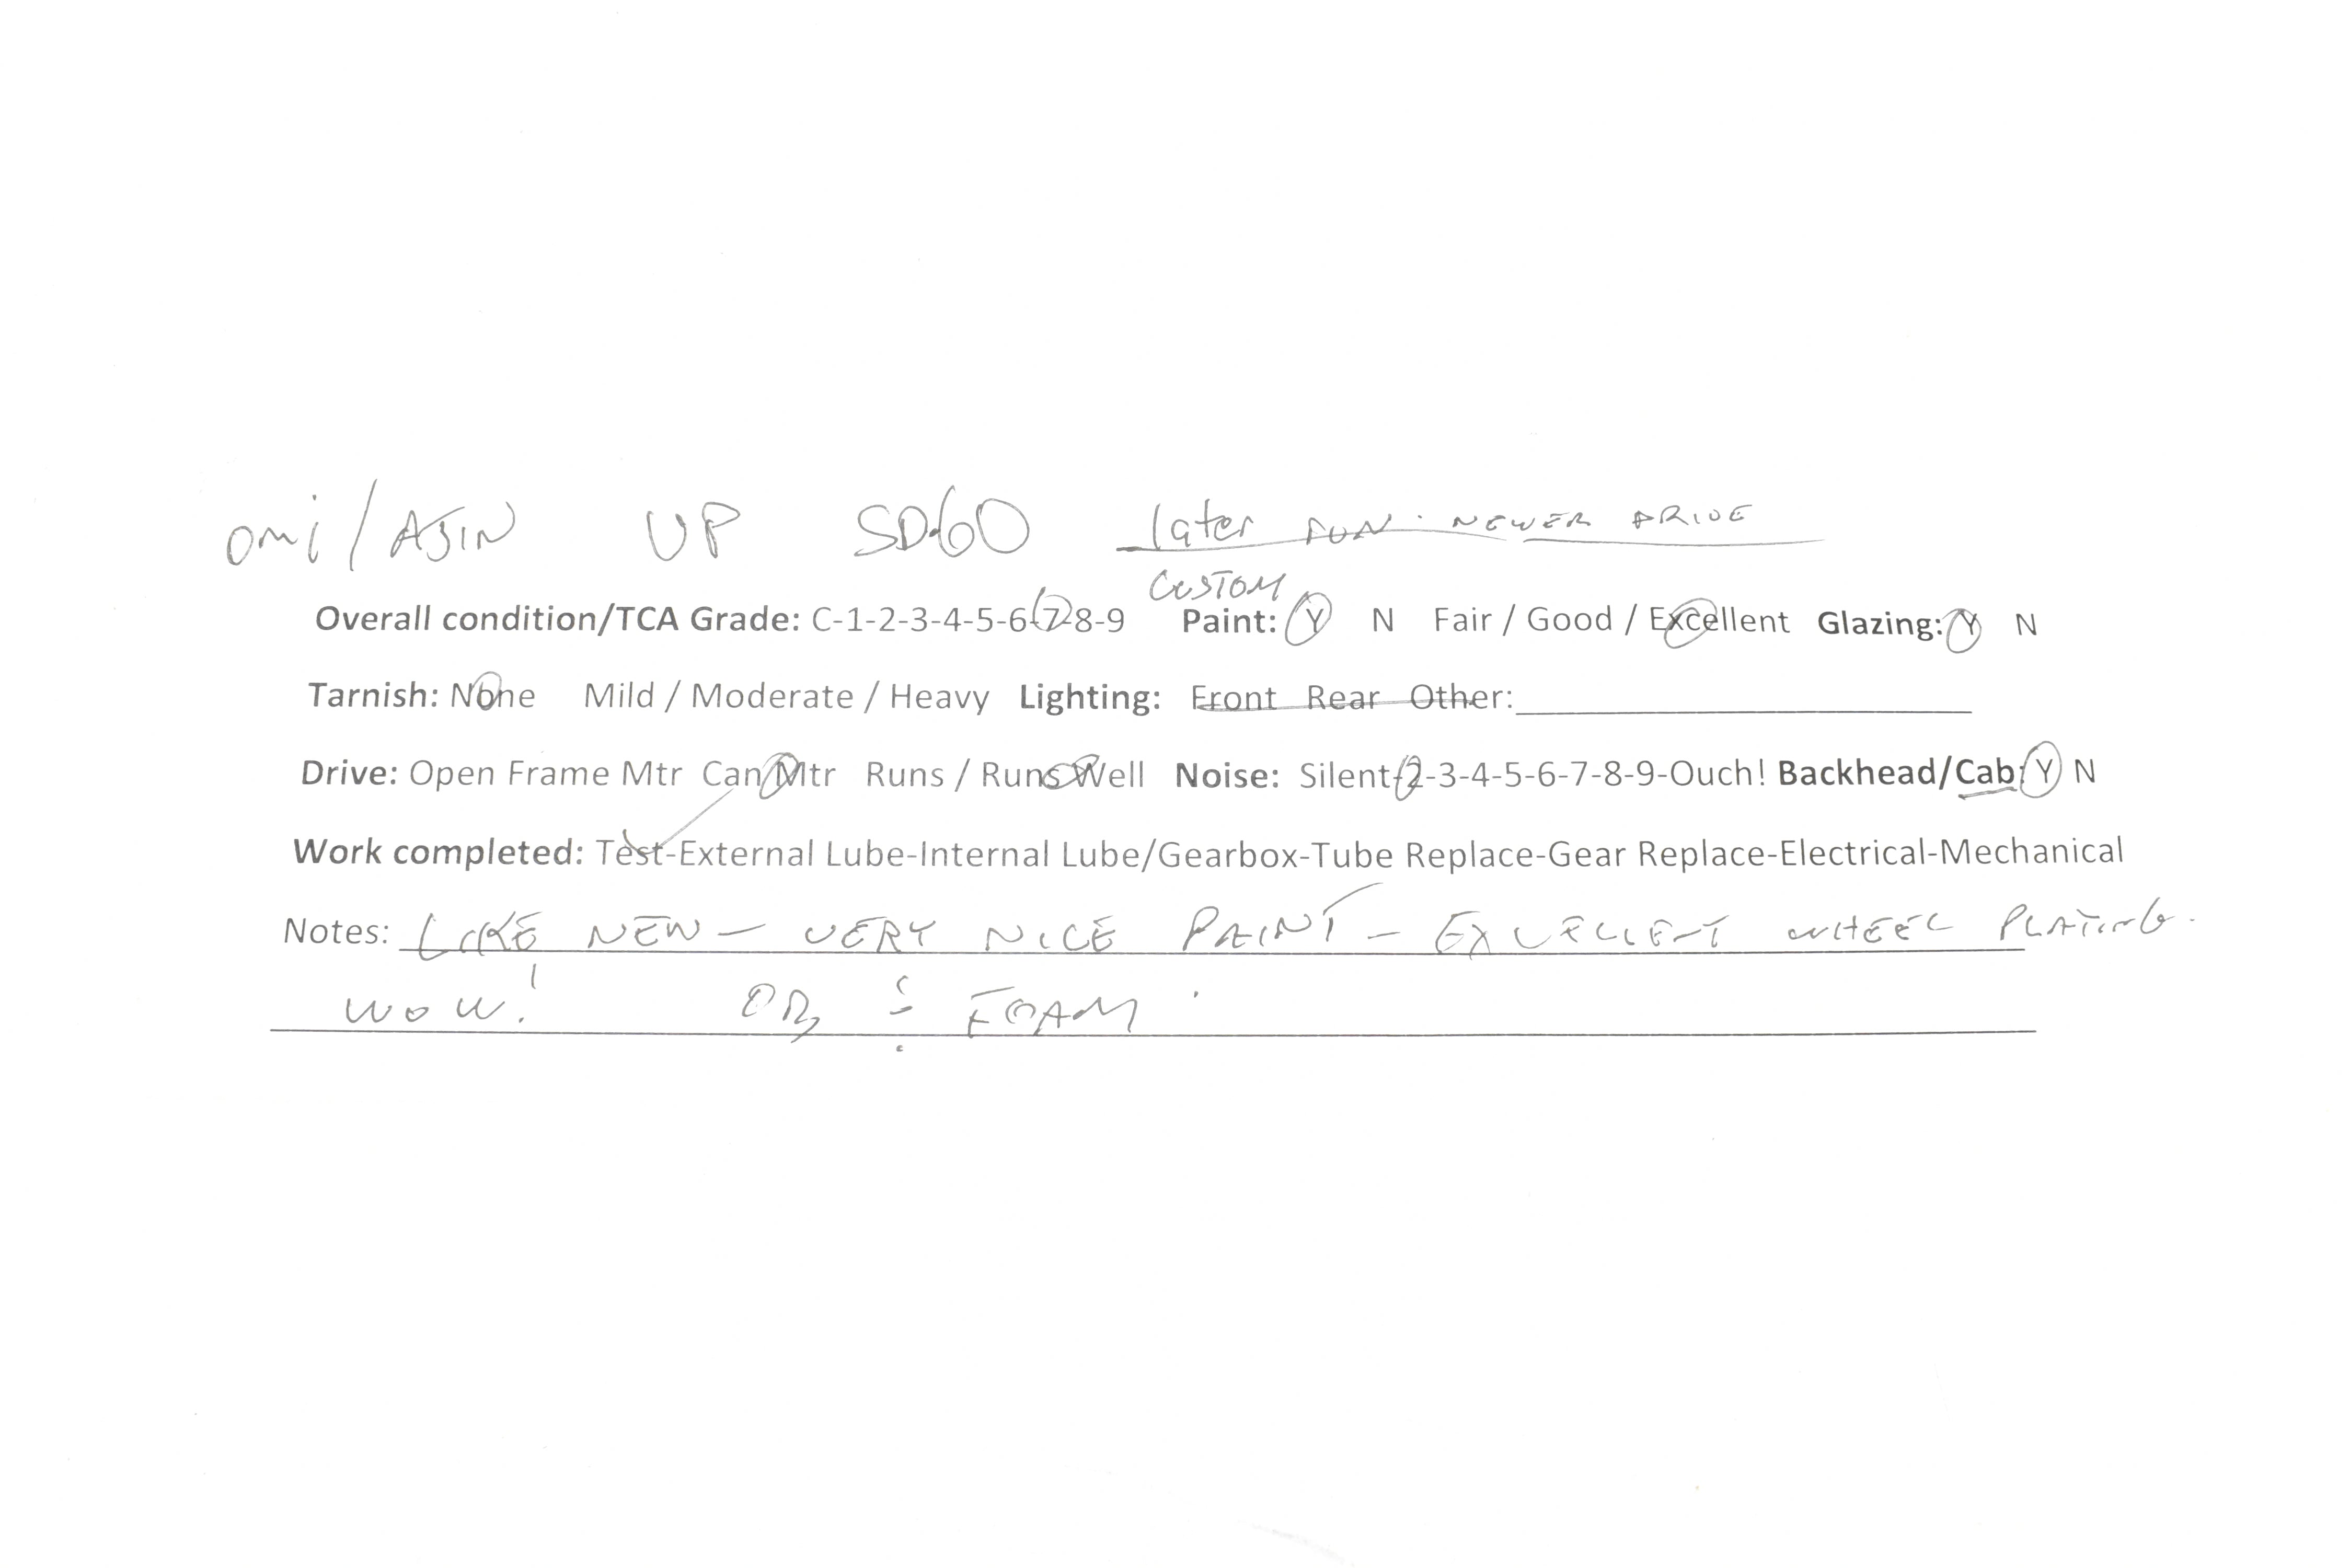 omi/AJIN UP SD60 later RUN. NEWER DRIVE
CUSTOM
Overall condition/TCA Grade: C-1-2-3-4-5-6-7-8-9 Paint: Y N Fair / Good / Excellent Glazing: Y N
Tarnish: None Mild / Moderate / Heavy Lighting: Front Rear Other:
Drive: Open Frame Mtr Can Mtr Runs / Runs Well Noise: Silent-2-3-4-5-6-7-8-9-Ouch! Backhead/Cab: Y N
Work completed: Test-External Lube-Internal Lube/Gearbox-Tube Replace-Gear Replace-Electrical-Mechanical
Notes: LIKE NEW - VERY NICE PAINT - EXCELLENT WHEEL PLATING.
WOW! OB & FOAM.